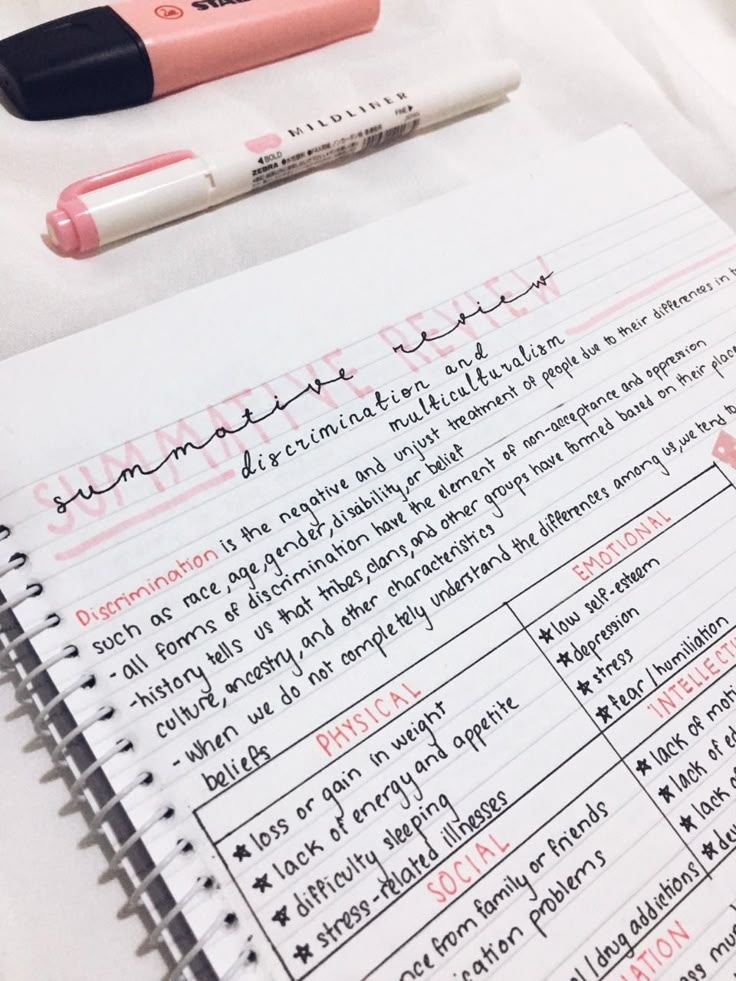 STA
MILDLINER
BOLD
FINE
ZEBRA
SUMMATIVE REVIEW
summative review
discrimination and
multiculturalism
Discrimination is the negative and unjust treatment of people due to their differences in
such as race, age, gender, disability, or belief
-all forms of discrimination have the element of non-acceptance and oppression
-history tells us that tribes, clans, and other groups have formed based on their place
culture, ancestry, and other characteristics
-When we do not completely understand the differences among us, we tend to
beliefs
PHYSICAL
★loss or gain in weight
★lack of energy and appetite
★difficulty sleeping
★stress-related illnesses
EMOTIONAL
★low self-esteem
★depression
★stress
★fear/humiliation
INTELLECTU
★lack of moti
★lack of ed
★lack of
★dev
SOCIAL
nce from family or friends
ication problems
l/drug addictions
ATION